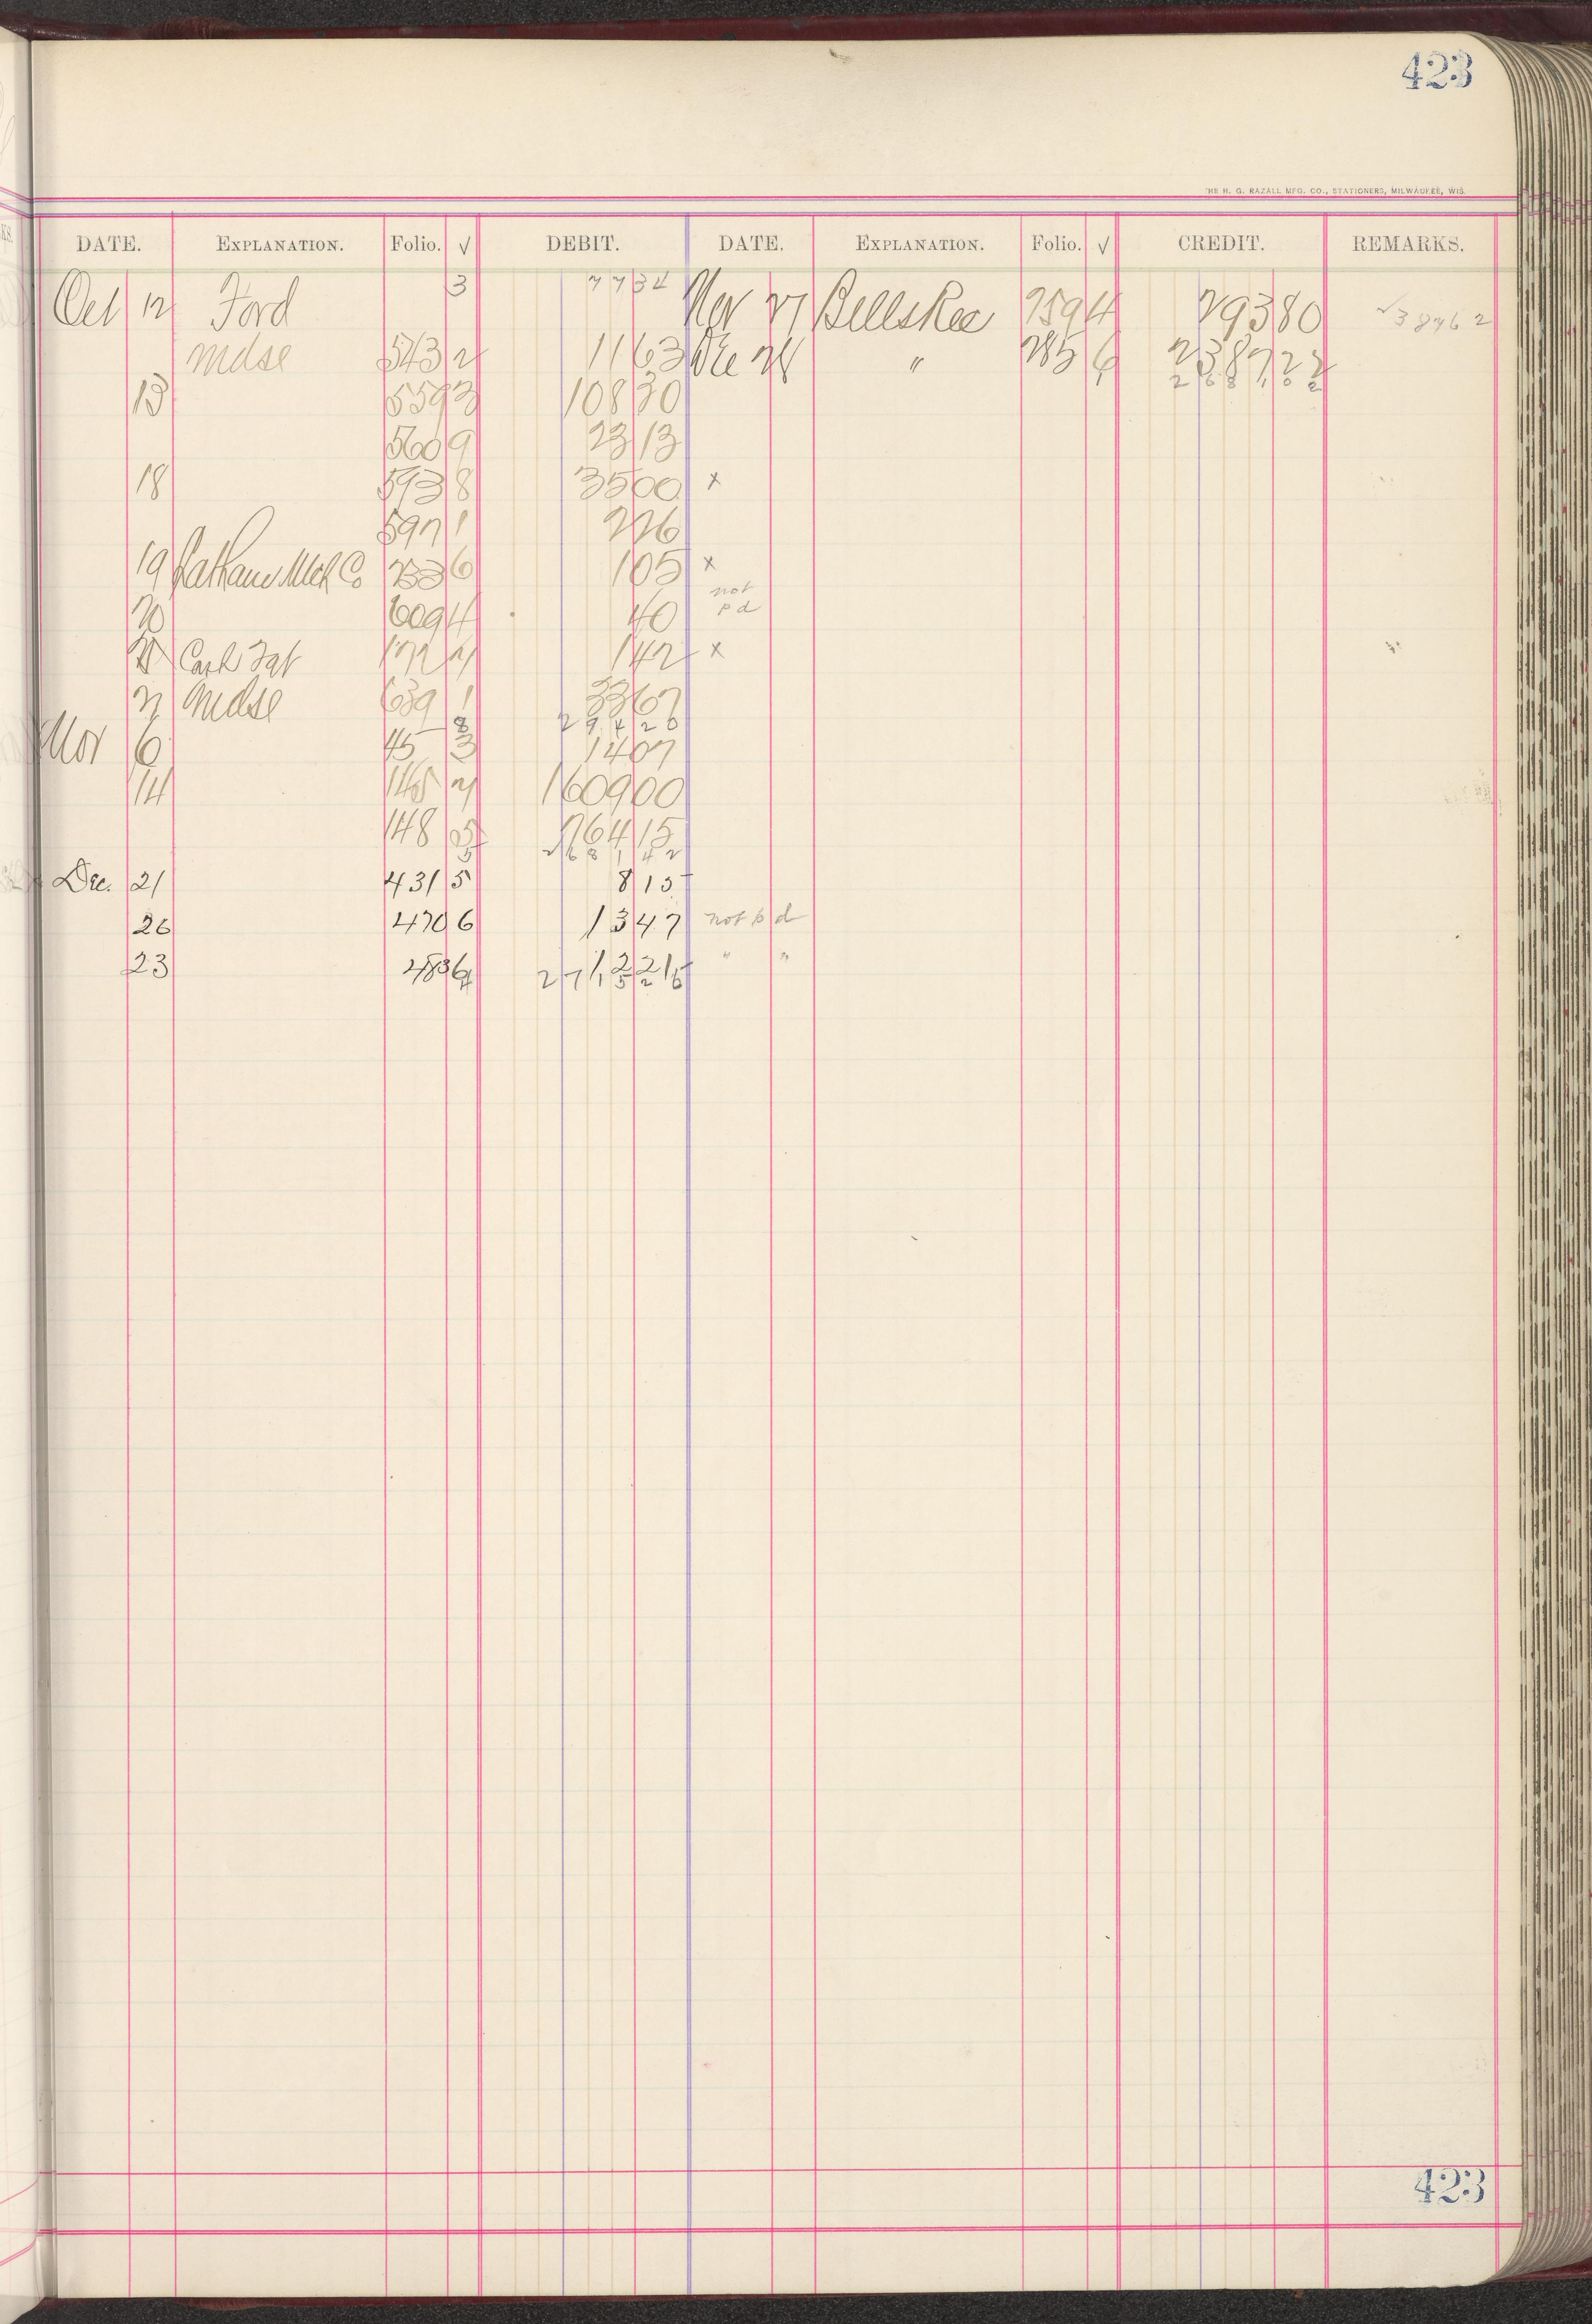 423
THE H. G. RAZALL MFG. CO., STATIONERS, MILWAUKEE, WIS.
DATE. EXPLANATION. Folio. √ DEBIT. DATE. EXPLANATION. Folio. √ CREDIT. REMARKS.
Oct 12 Ford 3 77 34 Nov 27 Bells Rec 259 4 293 80 √38462
mdse 543 2 11 63 Dec 28 " 285 6 2387 22
2681 02
13 559 3 108 30
560 9 23 13
18 593 8 35 00 x
597 1 2 26
19 Mch Co 233 6 1 05 x
20 609 4 40 not pd
Cash 172 1 42 x
Mdse 639 1 33 67
8 294 20
Nov 6 45 3 14 07
14 145 2 1609 00
148 5 764 15
5 2681 42
Dec. 21 431 5 8 15
26 470 6 13 47 not pd
23 483 6 12 21 " "
4 2715 25
423